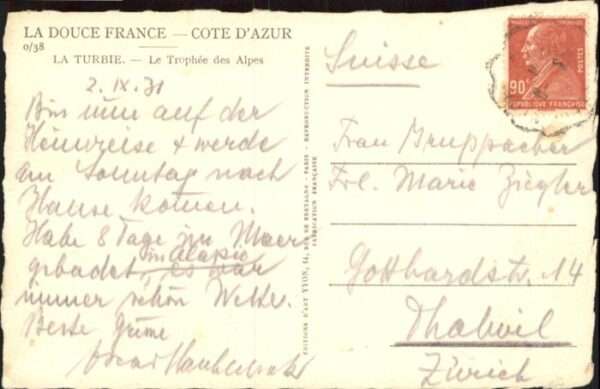 LA DOUCE FRANCE — COTE D'AZUR
0/38
LA TURBIE. — Le Trophée des Alpes
2. IX. 31
Bin nun auf der
Heimreise & werde
am Sonntag nach
Hause komen.
Habe 8 Tage im Meer
in Alassio
gebadet, es war
immer schön Wetter.
Beste Grüsse
Oscar
ÉDITIONS D'ART YVON, 14, RUE DE BRETAGNE - PARIS - REPRODUCTION INTERDITE
FABRICATION FRANÇAISE
Suisse
Frau Bruppacher
Frl. Marie Ziegler
Gotthardstr. 14
Thalwil
Zürich
90c
POSTES
RÉPUBLIQUE FRANÇAISE